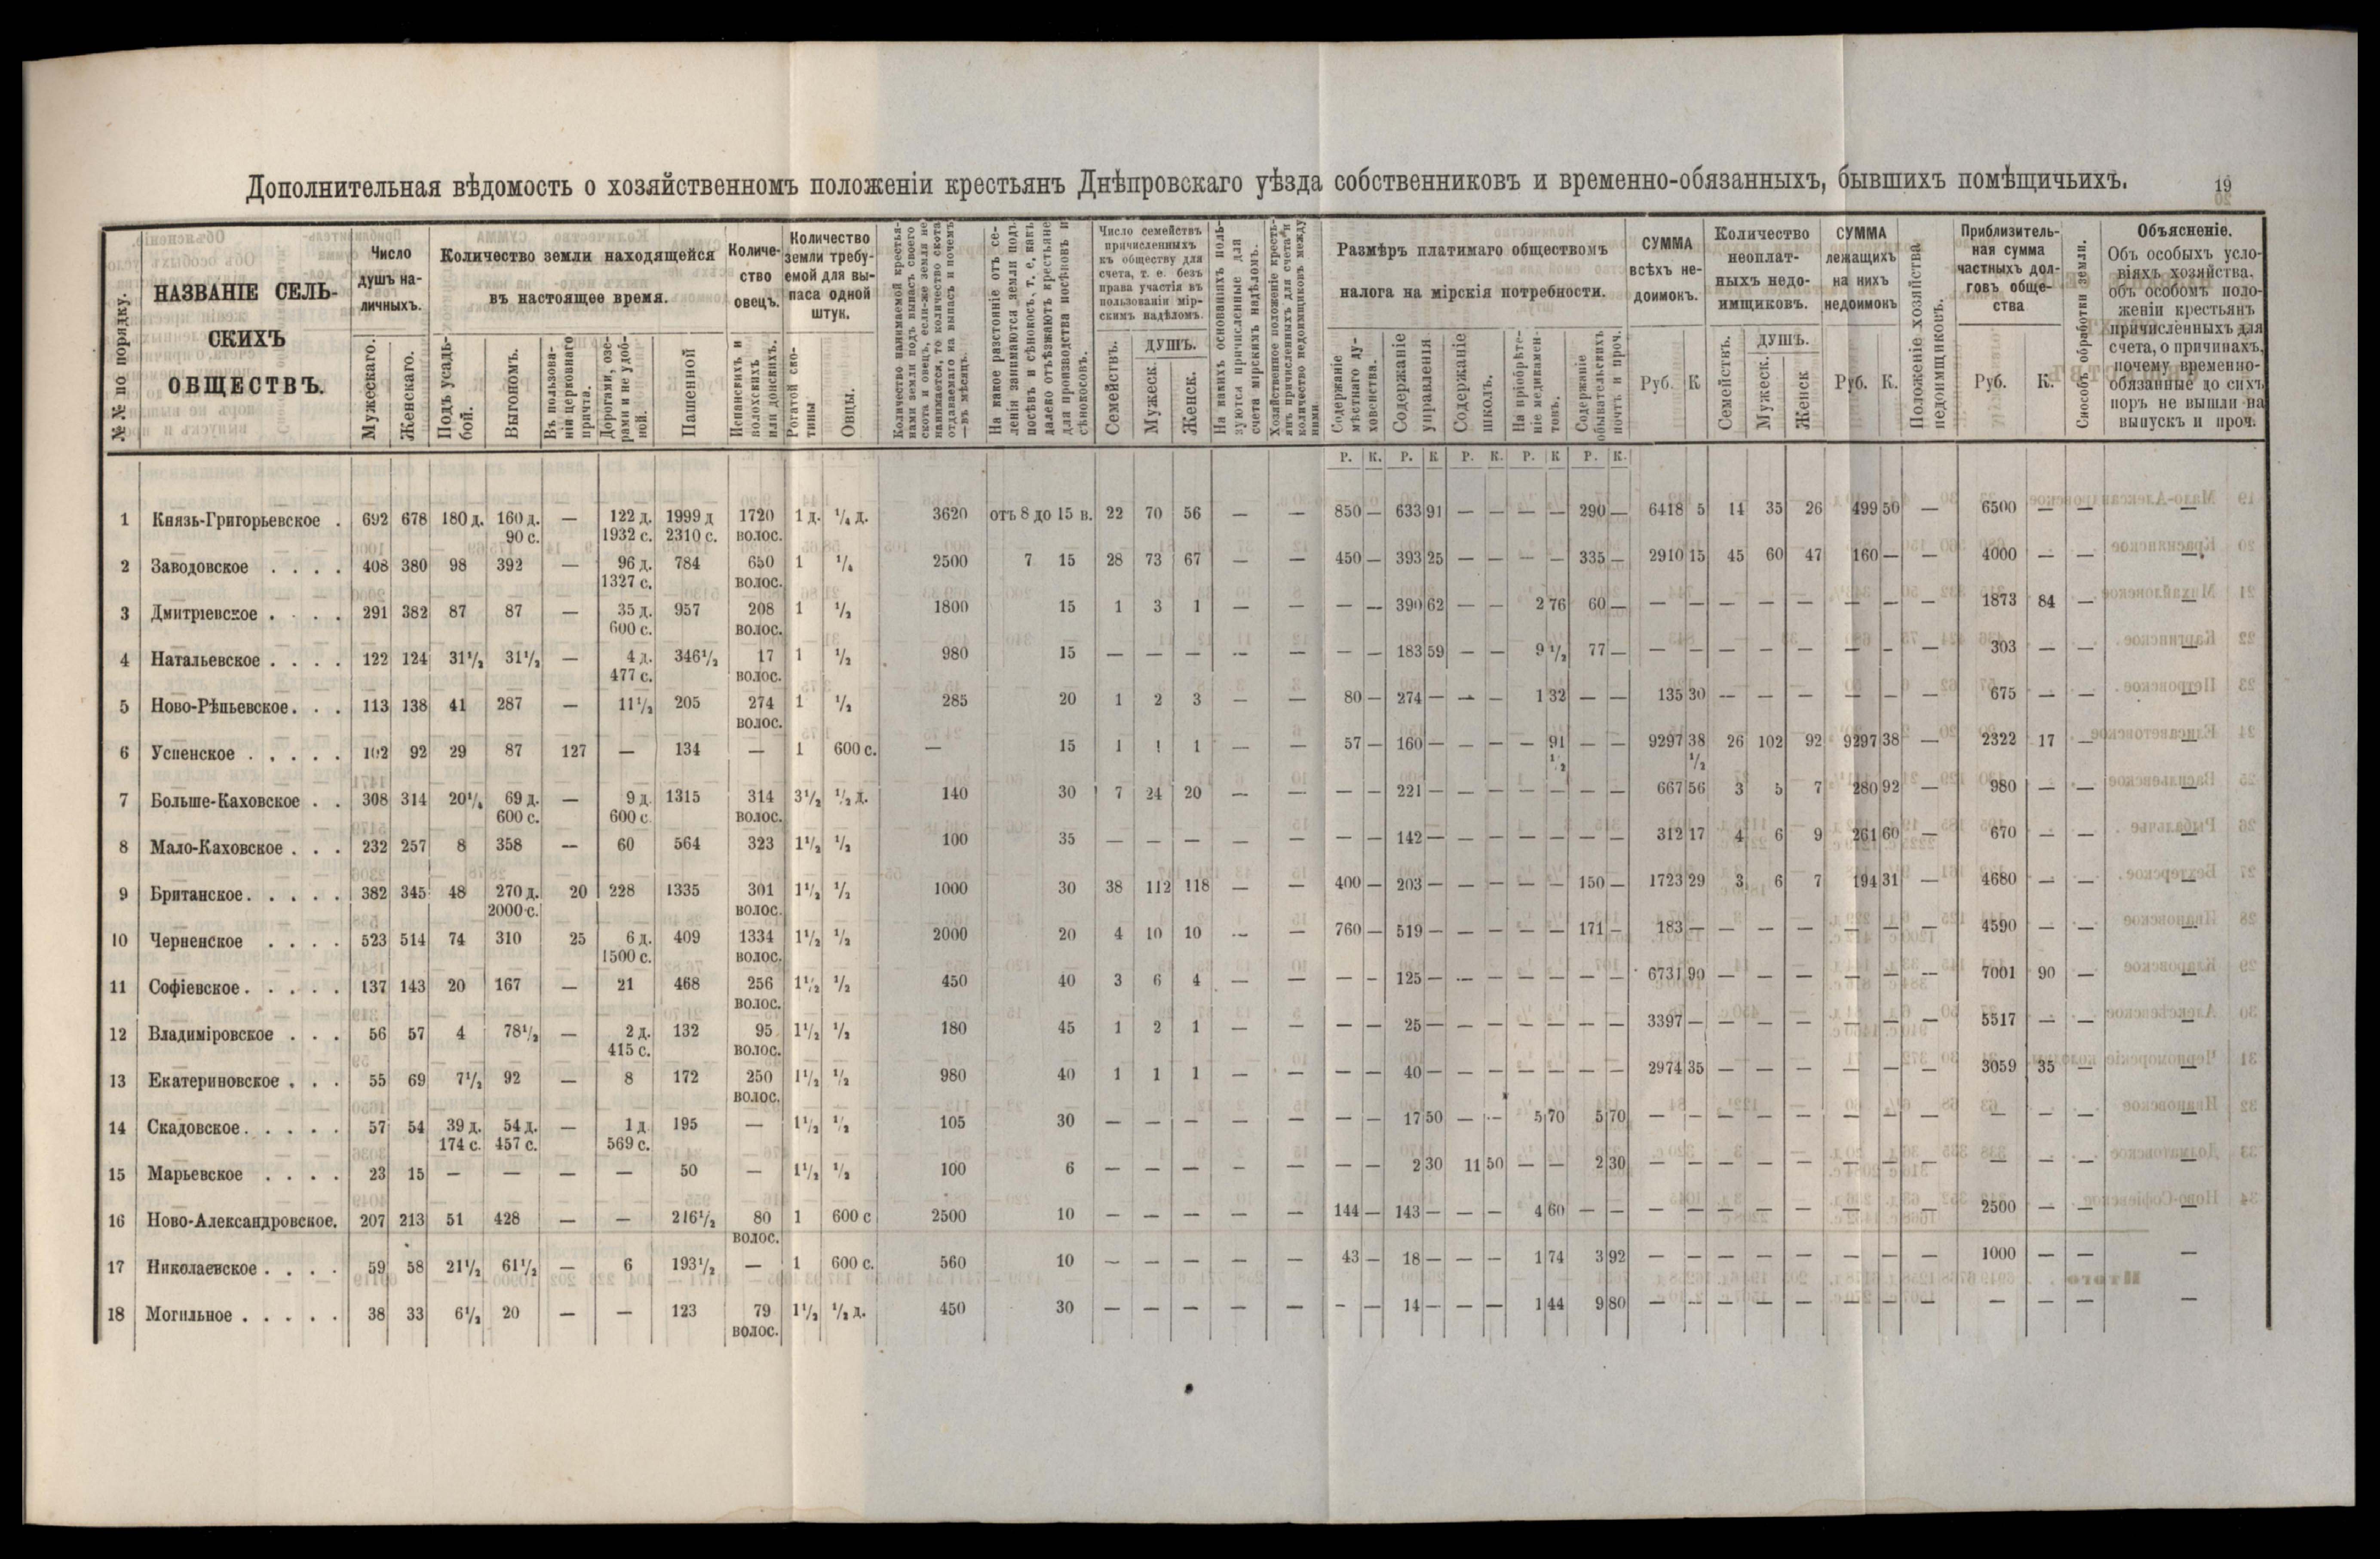 Дополнительная вѣдомость о хозяйственномъ положеніи крестьянъ Днѣпровскаго уѣзда собственниковъ и временно-обязанныхъ, бывшихъ помѣщичьихъ.
19
№№ по порядку.
НАЗВАНІЕ СЕЛЬ-
СКИХЪ
ОБЩЕСТВЪ.
Число
душъ на-
личныхъ.
Мужескаго.
Женскаго.
Количество земли находящейся
въ настоящее время.
Подъ усадь-
бой.
Выгономъ.
Въ пользова-
ніи церковнаго
причта.
Дорогами, озе-
рами и не удоб-
ной.
Пашенной
Количе-
ство
овецъ.
Испанскихъ и
волохскихъ
или донскихъ.
Количество
земли требу-
емой для вы-
паса одной
штук.
Рогатой ско-
тины
Овцы.
Количество нанимаемой крестья-
нами земли подъ выпасъ своего
скота и овецъ, если-же земля не
нанимается, то количество скота
отдаваемаго на выпасъ и почемъ
—въ мѣсяцъ.
На какое разстояніе отъ се-
ленія занимаются земли подъ
посѣвъ и сѣнокосъ. т. е. какъ
далеко отъѣзжаютъ крестьяне
для производства посѣвовъ и
сѣнокосовъ.
Число семействъ
причисленныхъ
къ обществу для
счета, т. е. безъ
права участія въ
пользованіи мір-
скимъ надѣломъ.
Семействъ.
ДУШЪ.
Мужеск.
Женск.
На какихъ основаніяхъ поль-
зуются причисленные для
счета мірскимъ надѣломъ.
Хозяйственное положеніе кресть-
янъ причисленныхъ для счета и
количество недоимщиковъ между
ними.
Размѣръ платимаго обществомъ
налога на мірскія потребности.
Содержаніе
мѣстнаго ду-
ховенства.
Содержаніе
управленія.
Содержаніе
школъ.
На пріобрѣте-
ніе медикамен-
товъ.
Содержаніе
обывательскихъ
почтъ и проч.
СУММА
всѣхъ не-
доимокъ.
Руб. К
Количество
неоплат-
ныхъ недо-
имщиковъ.
Семействъ.
ДУШЪ.
Мужеск.
Женск
СУММА
лежащихъ
на нихъ
недоимокъ
Руб. К.
Положеніе хозяйства
недоимщиковъ.
Приблизитель-
ная сумма
частныхъ дол-
говъ обще-
ства
Руб. К.
Способъ обработки земли.
Объясненіе.
Объ особыхъ усло-
віяхъ хозяйства,
объ особомъ поло-
женіи крестьянъ
причисленныхъ для
счета, о причинахъ,
почему временно-
обязанные до сихъ
поръ не вышли на
выпускъ и проч.
Р. К. Р. К Р. К. Р. К Р. К.
1 Князь-Григорьевское . 692 678 180 д. 160 д. — 122 д. 1999 д 1720 1 д. ¼ д. 3620 отъ 8 до 15 в. 22 70 56 — — 850 — 633 91 — — — — 290 — 6418 5 14 35 26 499 50 — 6500 — — —
90 с. 1932 с. 2310 с. волос.
2 Заводовское . . . . 408 380 98 392 — 96 д. 784 650 1 ¼ 2500 7 15 28 73 67 — — 450 — 393 25 — — — — 335 — 2910 15 45 60 47 160 — — 4000 — — —
1327 с. волос.
3 Дмитріевское . . . . 291 382 87 87 — 35 д. 957 208 1 ½ 1800 15 1 3 1 — — — — 390 62 — — 2 76 60 — — — — — — — — — 1873 84 — —
600 с. волос.
4 Натальевское . . . . 122 124 31½ 31½ — 4 д. 346½ 17 1 ½ 980 15 — — — — — — — 183 59 — — 9 ½ 77 — — — — — — — — — 303 — — —
477 с. волос.
5 Ново-Рѣпьевское . . . 113 138 41 287 — 11½ 205 274 1 ½ 285 20 1 2 3 — — 80 — 274 — — — 1 32 — — 135 30 — — — — — — 675 — — —
волос.
6 Успенское . . . . . 102 92 29 87 127 — 134 — 1 600 с. — 15 1 1 1 — — 57 — 160 — — — — 91 — — 9297 38 26 102 92 9297 38 — 2322 17 — —
½ ½
7 Больше-Каховское . . 308 314 20¼ 69 д. — 9 д. 1315 314 3½ ½ д. 140 30 7 24 20 — — — — 221 — — — — — — — 667 56 3 5 7 280 92 — 980 — — —
600 с. 600 с. волос.
8 Мало-Каховское . . . 232 257 8 358 — 60 564 323 1½ ½ 100 35 — — — — — — — 142 — — — — — — — 312 17 4 6 9 261 60 — 670 — — —
9 Британское . . . . . 382 345 48 270 д. 20 228 1335 301 1½ ½ 1000 30 38 112 118 — — 400 — 203 — — — — — 150 — 1723 29 3 6 7 194 31 — 4680 — — —
2000 с. волос.
10 Черненское . . . . 523 514 74 310 25 6 д. 409 1334 1½ ½ 2000 20 4 10 10 — — 760 — 519 — — — — — 171 — 183 — — — — — — — 4590 — — —
1500 с. волос.
11 Софіевское . . . . . 137 143 20 167 — 21 468 256 1½ ½ 450 40 3 6 4 — — — — 125 — — — — — — — 6731 90 — — — — — — 7001 90 — —
волос.
12 Владиміровское . . . 56 57 4 78½ — 2 д. 132 95 1½ ½ 180 45 1 2 1 — — — — 25 — — — — — — — 3397 — — — — — — — 5517 — — —
415 с. волос.
13 Екатериновское . . . 55 69 7½ 92 — 8 172 250 1½ ½ 980 40 1 1 1 — — — — 40 — — — — — — — 2974 35 — — — — — — 3059 35 — —
волос.
14 Скадовское . . . . . 57 54 39 д. 54 д. — 1 д 195 — 1½ ½ 105 30 — — — — — — — 17 50 — — 5 70 5 70 — — — — — — — — — — — —
174 с. 457 с. 569 с.
15 Марьевское . . . . 23 15 — — — — 50 — 1½ ½ 100 6 — — — — — — — 2 30 11 50 — — 2 30 — — — — — — — — — — — —
16 Ново-Александровское. 207 213 51 428 — — 216½ 80 1 600 с 2500 10 — — — — — 144 — 143 — — — 4 60 — — — — — — — — — — 2500 — — —
волос.
17 Николаевское . . . . 59 58 21½ 61½ — 6 193½ — 1 600 с. 560 10 — — — — — 43 — 18 — — — 1 74 3 92 — — — — — — — — 1000 — — —
18 Могильное . . . . . 38 33 6½ 20 — — 123 79 1½ ½ д. 450 30 — — — — — — — 14 — — — 1 44 9 80 — — — — — — — — — — — —
волос.